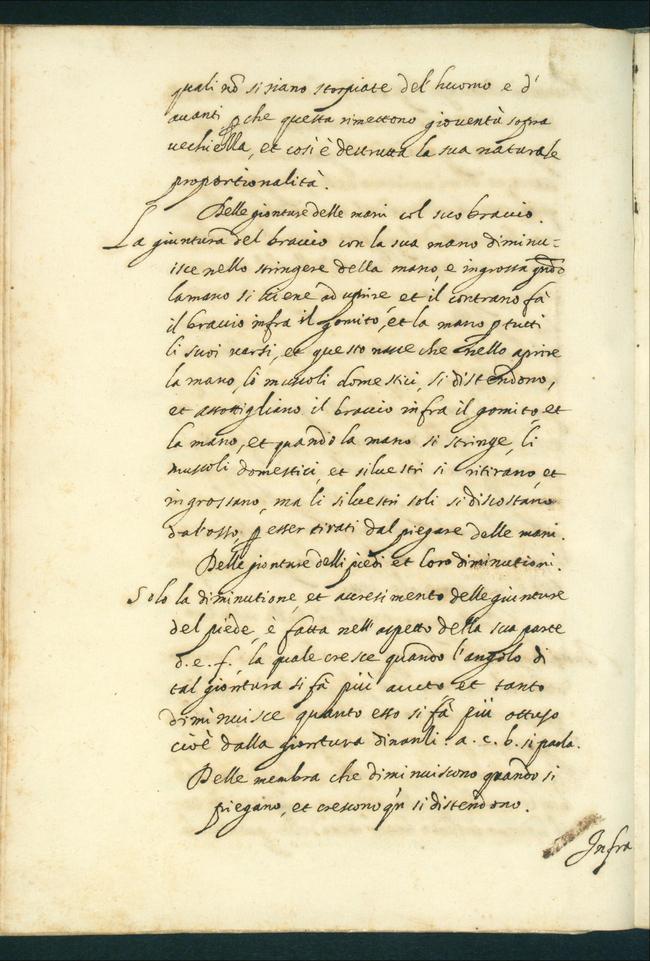 quali nō si siano storpiate del' huomo e d'
auanti ꝑ che questa rimettono giouentù sopra
uechiella, et cosi è destrutta la sua naturale
proportionalità.
Delle gionture delle mani col suo braccio.
La giuntura del braccio con la sua mano diminu=
isce nello stringere della mano, e ingrossa qñdo
la mano si uiene ad aprire, et il contrario fà
il braccio infra il gomito, et la mano ꝑ tutti
li suoi uersi, et questo nasce che nello aprire
la mano, li muscoli domestici, si distendono,
et assottigliano il braccio infra il gomito, et
la mano, et quando la mano si stringe, li
muscoli domestici, et siluestri si ritirano, et
ingrossano, ma li siluestri soli si discostano
dal'osso, ꝑ esser tirati dal piegare delle mani.
Delle gionture delli piedi et loro diminutioni.
Solo la diminutione, et accresimento delle giunture
del piede, è fatta nell' aspetto della sua parte
d. e. f. la quale cresce quando l'angolo di
tal giontura si fà più acuto et tanto
diminuisce quanto esso si fà più ottuso
cioè dalla giontura dinanti. a. c. b. si parla.
Delle membra che diminuiscono quando si
piegano, et crescono qñ si distendono.
Infra